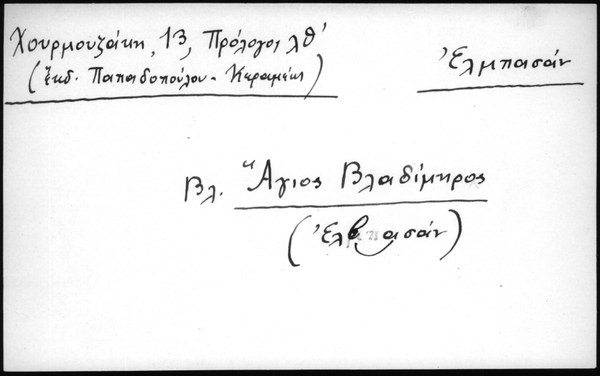 Χουρμουζάκη, 13, Πρόλογος λθ'
(ἔκδ. Παπαδοπούλου - Κεραμέως)
Ἐλμπασάν
Βλ. Ἅγιος Βλαδίμηρος
(Ἐλβασάν)